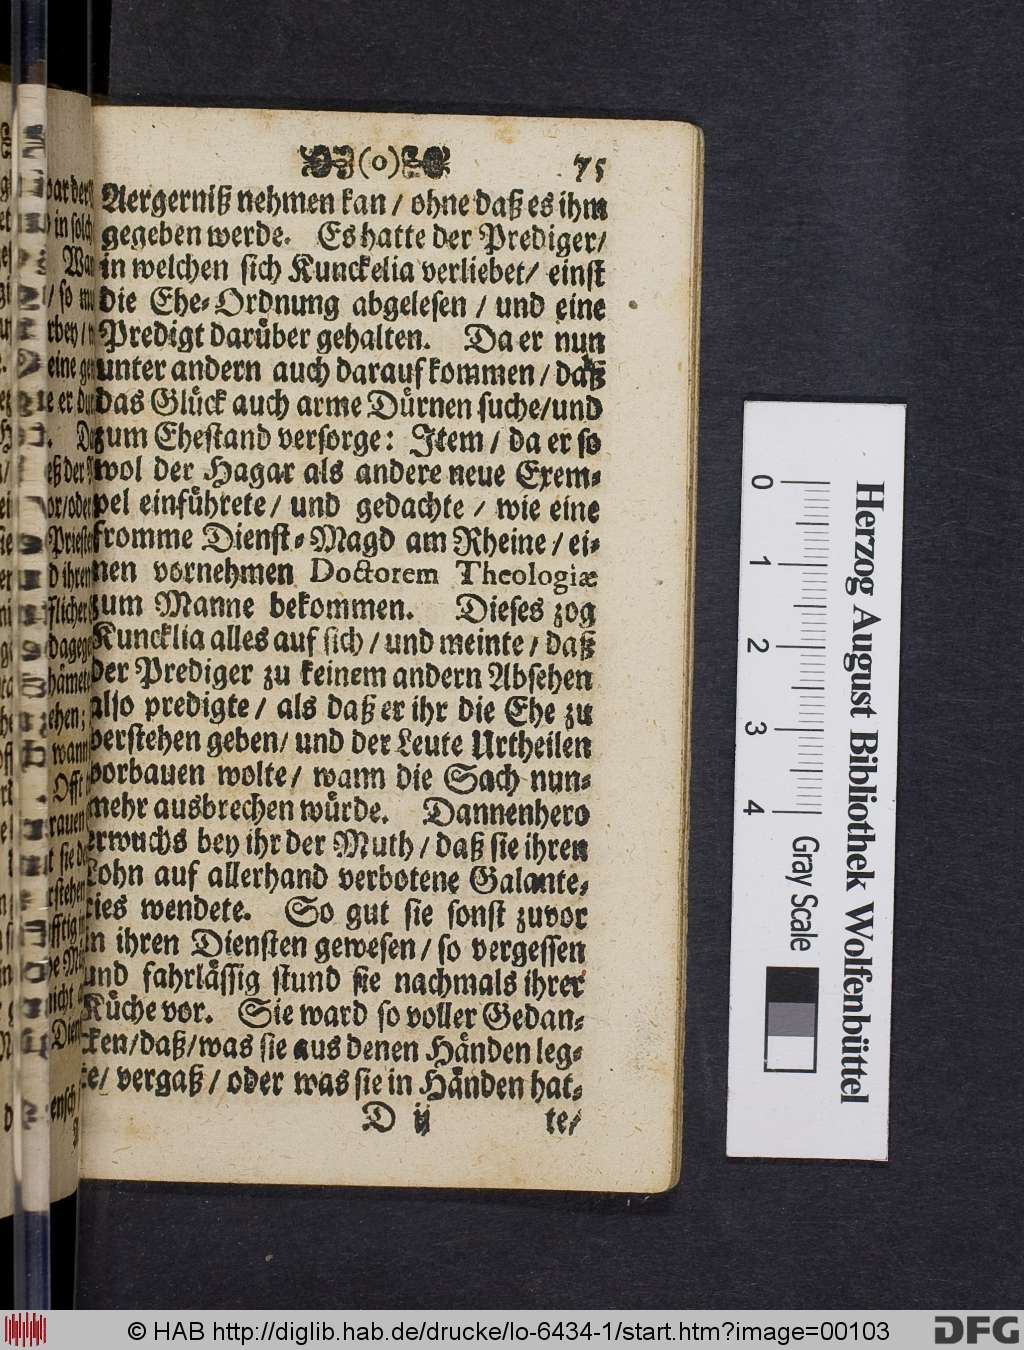 (o) 75
Aergerniß nehmen kan / ohne daß es ihm
gegeben werde. Es hatte der Prediger /
in welchen sich Kunckelia verliebet / einst
die Ehe-Ordnung abgelesen / und eine
Predigt darüber gehalten. Da er nun
unter andern auch darauf kommen / daß
das Glück auch arme Dürnen suche / und
zum Ehestand versorge: Item / da er so
wol der Hagar als andere neue Exem-
pel einführete / und gedachte / wie eine
fromme Dienst-Magd am Rheine / ei-
nen vornehmen Doctorem Theologiæ
zum Manne bekommen. Dieses zog
Kuncklia alles auf sich / und meinte / daß
der Prediger zu keinem andern Absehen
also predigte / als daß er ihr die Ehe zu
verstehen geben / und der Leute Urtheilen
vorbauen wolte / wann die Sach nun-
mehr ausbrechen würde. Dannenhero
erwuchs bey ihr der Muth / daß sie ihren
Lohn auf allerhand verbotene Galante-
ries wendete. So gut sie sonst zuvor
in ihren Diensten gewesen / so vergessen
und fahrlässig stund sie nachmals ihrer
Küche vor. Sie ward so voller Gedan-
cken / daß / was sie aus denen Händen leg-
te / vergaß / oder was sie in Händen hat-
D ij te /
Herzog August Bibliothek Wolfenbüttel
0 1 2 3 4 Gray Scale
© HAB http://diglib.hab.de/drucke/lo-6434-1/start.htm?image=00103
DFG